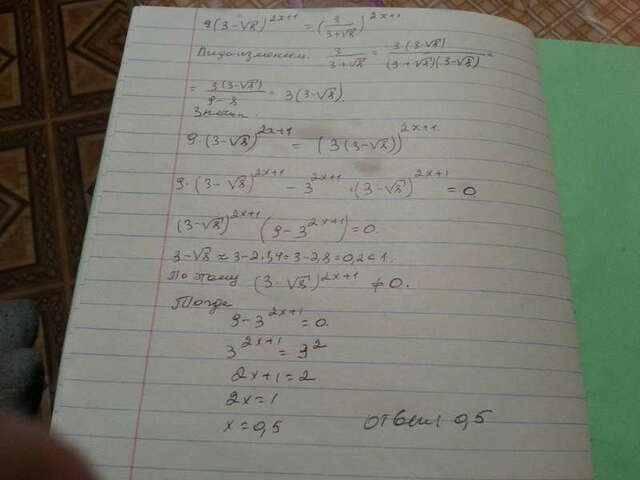 9(3-√8)^{2x+1} = (3/(3+√8))^{2x+1}
Видоизменим. 3/(3+√8) = 3(3-√8)/((3+√8)(3-√8)) =
= 3(3-√8)/(9-8) = 3(3-√8).
Значит
9·(3-√8)^{2x+1} = (3(3-√8))^{2x+1}
9·(3-√8)^{2x+1} - 3^{2x+1}·(3-√8)^{2x+1} = 0.
(3-√8)^{2x+1} (9-3^{2x+1}) = 0.
3-√8 ≈ 3-2·1,4 = 3-2,8 = 0,2 < 1.
По тому (3-√8)^{2x+1} ≠ 0.
Тогда
9-3^{2x+1} = 0.
3^{2x+1} = 3^2
2x+1 = 2
2x = 1
x = 0,5 Ответ: 0,5